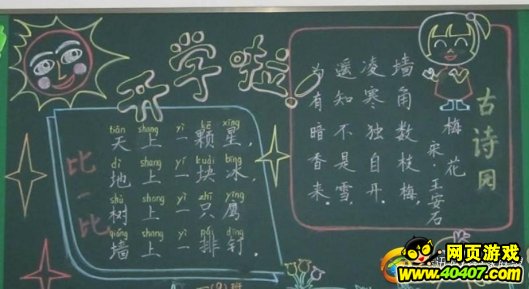 开学啦!
比一比
tiān shang yì kē xīng
天上一颗星,
dì shang yí kuài bīng
地上一块冰,
shù shang yì zhī yīng
树上一只鹰
qiáng shang yì pái dīng
墙上一排钉.
古诗园
梅花
宋 王安石
墙角数枝梅
凌寒独自开.
遥知不是雪,
为有暗香来.
网页游戏
www.40407.com